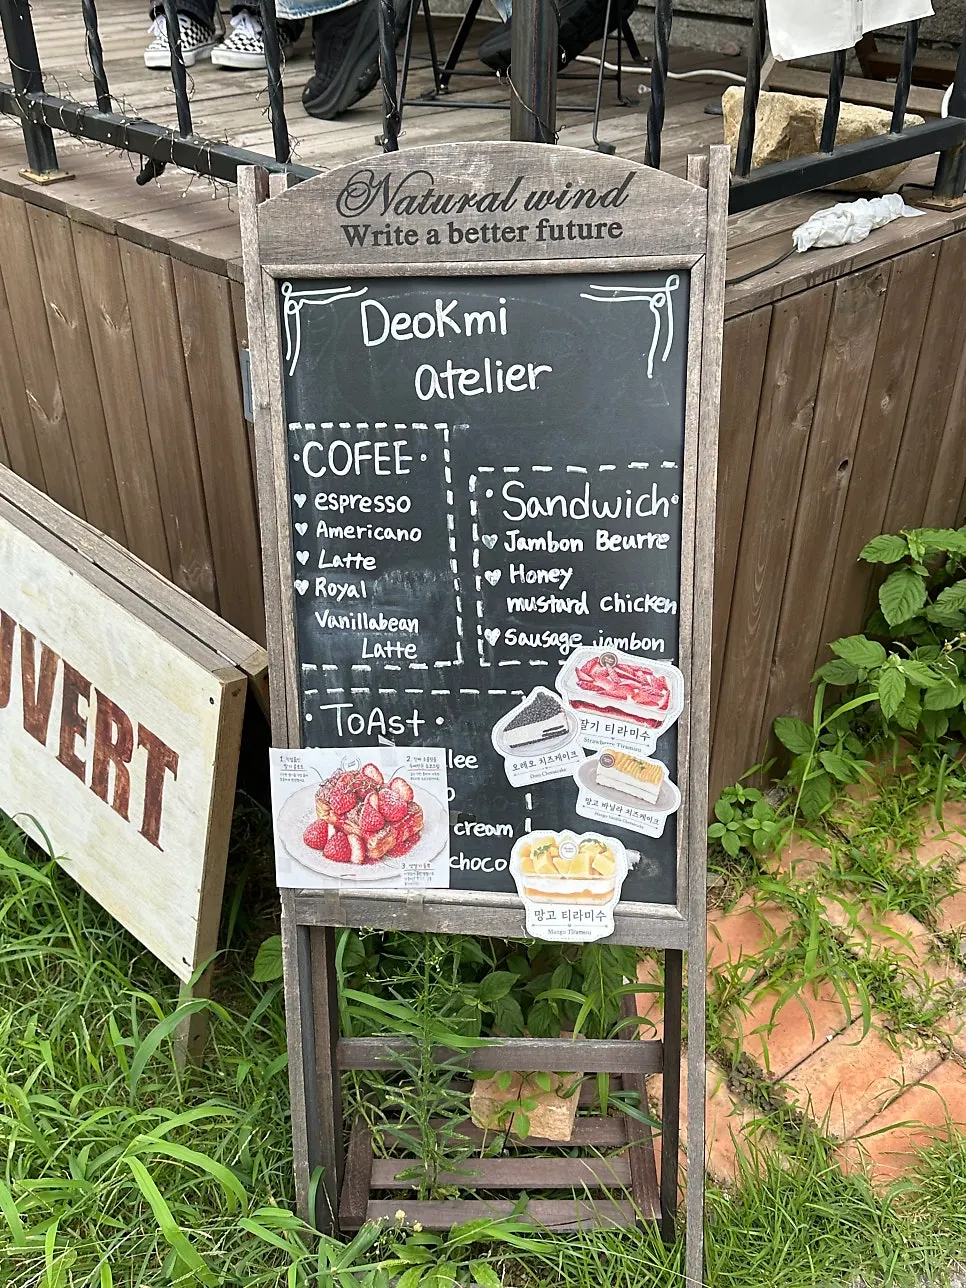 Natural wind
Write a better future
DeoKmi
atelier
·COFEE·
espresso
Americano
Latte
Royal
Vanillabean
Latte
·Sandwich·
Jambon Beurre
Honey
mustard chicken
sausage jambon
·ToAst·
lee
cream
choco
딸기 티라미수
Strawberry Tiramisu
오레오 치즈케이크
Oreo Cheesecake
망고 바닐라 치즈케이크
Mango Vanilla Cheesecake
망고 티라미수
Mango Tiramisu
1.
2.
3.
UVERT